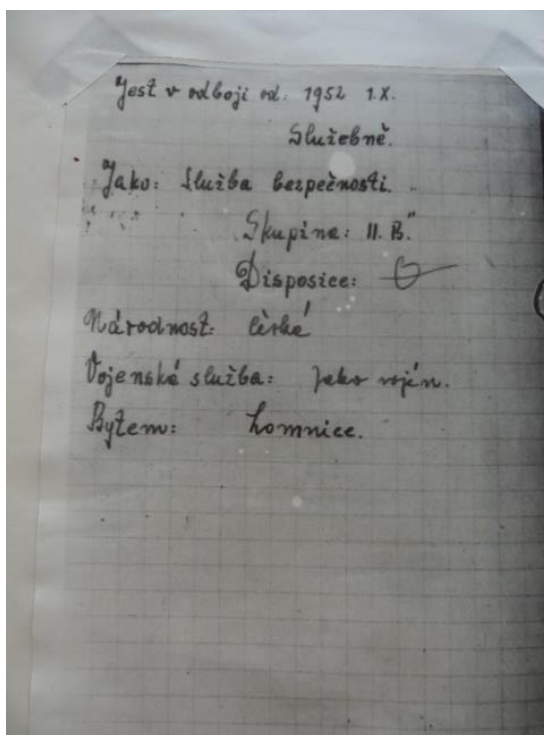 Jest v odboji od: 1952 1.X.
Služebně.
Jako: Služba bezpečnosti.
Skupina: II. B."
Disposice:
Národnost: česká
Vojenská služba: Jako vojín.
Bytem: Lomnice.